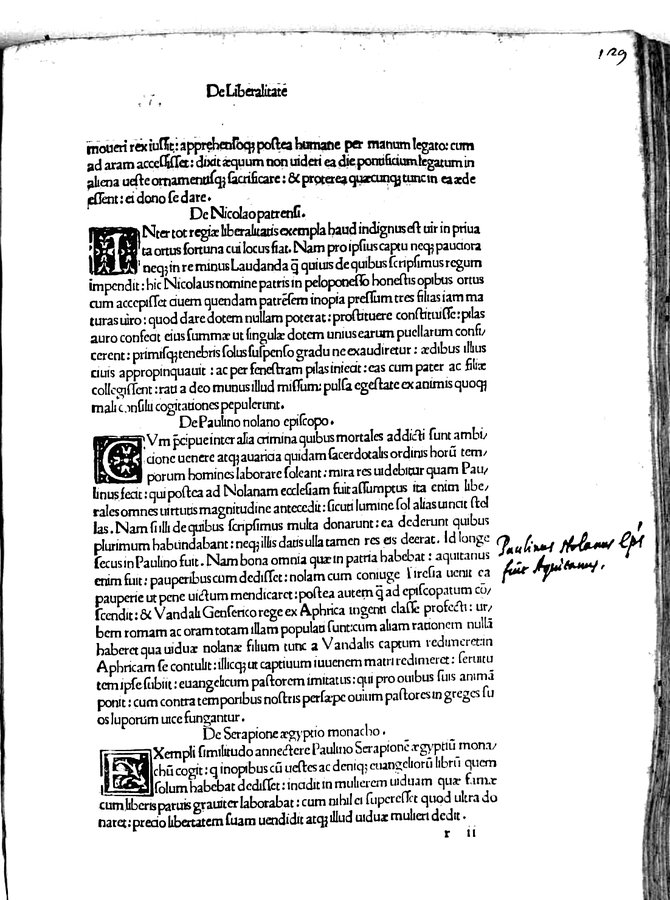 129
De Liberalitatē
moueri rex iuſſit: apprehenſoq; poſtea humane per manum legato: cum
ad aram acceſſiſſet: dixit æquum non uideri ea die pontificium legatum in
aliena ueſte ornamentiſq; ſacrificare: & proterea quæcunq; tunc in ea æde
eſſent: ei dono ſe dare.
De Nicolao patrenſi.
INter tot regiæ liberalitatis exempla haud indignus eſt uir in priua
ta ortus fortuna cui locus fiat. Nam pro ipſius captu neq; pauciora
neq; in re minus Laudanda q̄ quiuis de quibus ſcripſimus regum
impendit: hic Nicolaus nomine patris in peloponeſſo honeſtis opibus ortus
cum accepiſſet ciuem quendam patrēſem inopia preſſum tres filias iam ma
turas uiro: quod dare dotem nullam poterat: proſtituere conſtituiſſe: pilas
auro confecit eius ſummæ ut ſingulæ dotem unius earum puellarum confi/
cerent: primiſq; tenebris ſolus ſuſpenſo gradu ne exaudiretur: ædibus illius
ciuis appropinquauit: ac per feneſtram pilas iniecit: eas cum pater ac filiæ
collegiſſent: rati a deo munus illud miſſum: pulſa egeſtate ex animis quoq;
mali conſilii cogitationes pepulerunt.
De Paulino nolano epiſcopo.
CVm p̄cipue inter alia crimina quibus mortales addicti ſunt ambi/
cione uenere atq; auaricia quidam ſacerdotalis ordinis horū tem/
porum homines laborare ſoleant: mira res uidebitur quam Pau/
linus fecit: qui poſtea ad Nolanam eccleſiam fuit aſſumptus ita enim libe/
rales omnes uirtutis magnitudine antecedit: ſicuti lumine ſol alias uincit ſtel
las. Nam ſi illi de quibus ſcripſimus multa donarunt: ea dederunt quibus
plurimum habundabant: neq; illis datis ulla tamen res eis deerat. Id longe
ſecus in Paulino fuit. Nam bona omnia quæ in patria habebat: aquitanus
enim fuit: pauperibus cum dediſſet: nolam cum coniuge Tireſia uenit ea
pauperie ut pene uictum mendicaret: poſtea autem q̄ ad epiſcopatum cō/
ſcendit: & Vandali Genſerico rege ex Aphrica ingenti claſſe profecti: ur/
bem romam ac oram totam illam populati ſunt: cum aliam rationem nullā
haberet qua uiduæ nolanæ filium tunc a Vandalis captum redimeret: in
Aphricam ſe contulit: illicq; ut captiuum iuuenem matri redimeret: ſeruitu
tem ipſe ſubiit: euangelicum paſtorem imitatus: qui pro ouibus ſuis animā
ponit: cum contra temporibus noſtris perſæpe ouium paſtores in greges ſu
os luporum uice fungantur.
Paulinus Nolanus Ep̄s
fuit Aquitanus.
De Serapione ægyptio monacho.
EXempli ſimilitudo annectere Paulino Serapionē ægyptiū mona/
chū cogit: q inopibus cū ueſtes ac deniq; euangeliorū librū quem
ſolum habebat dediſſet: incidit in mulierem uiduam quæ fame
cum liberis paruis grauiter laborabat: cum nihil ei ſupereſſet quod ultra do
naret: precio libertatem ſuam uendidit atq; illud uiduæ mulieri dedit.
r ii